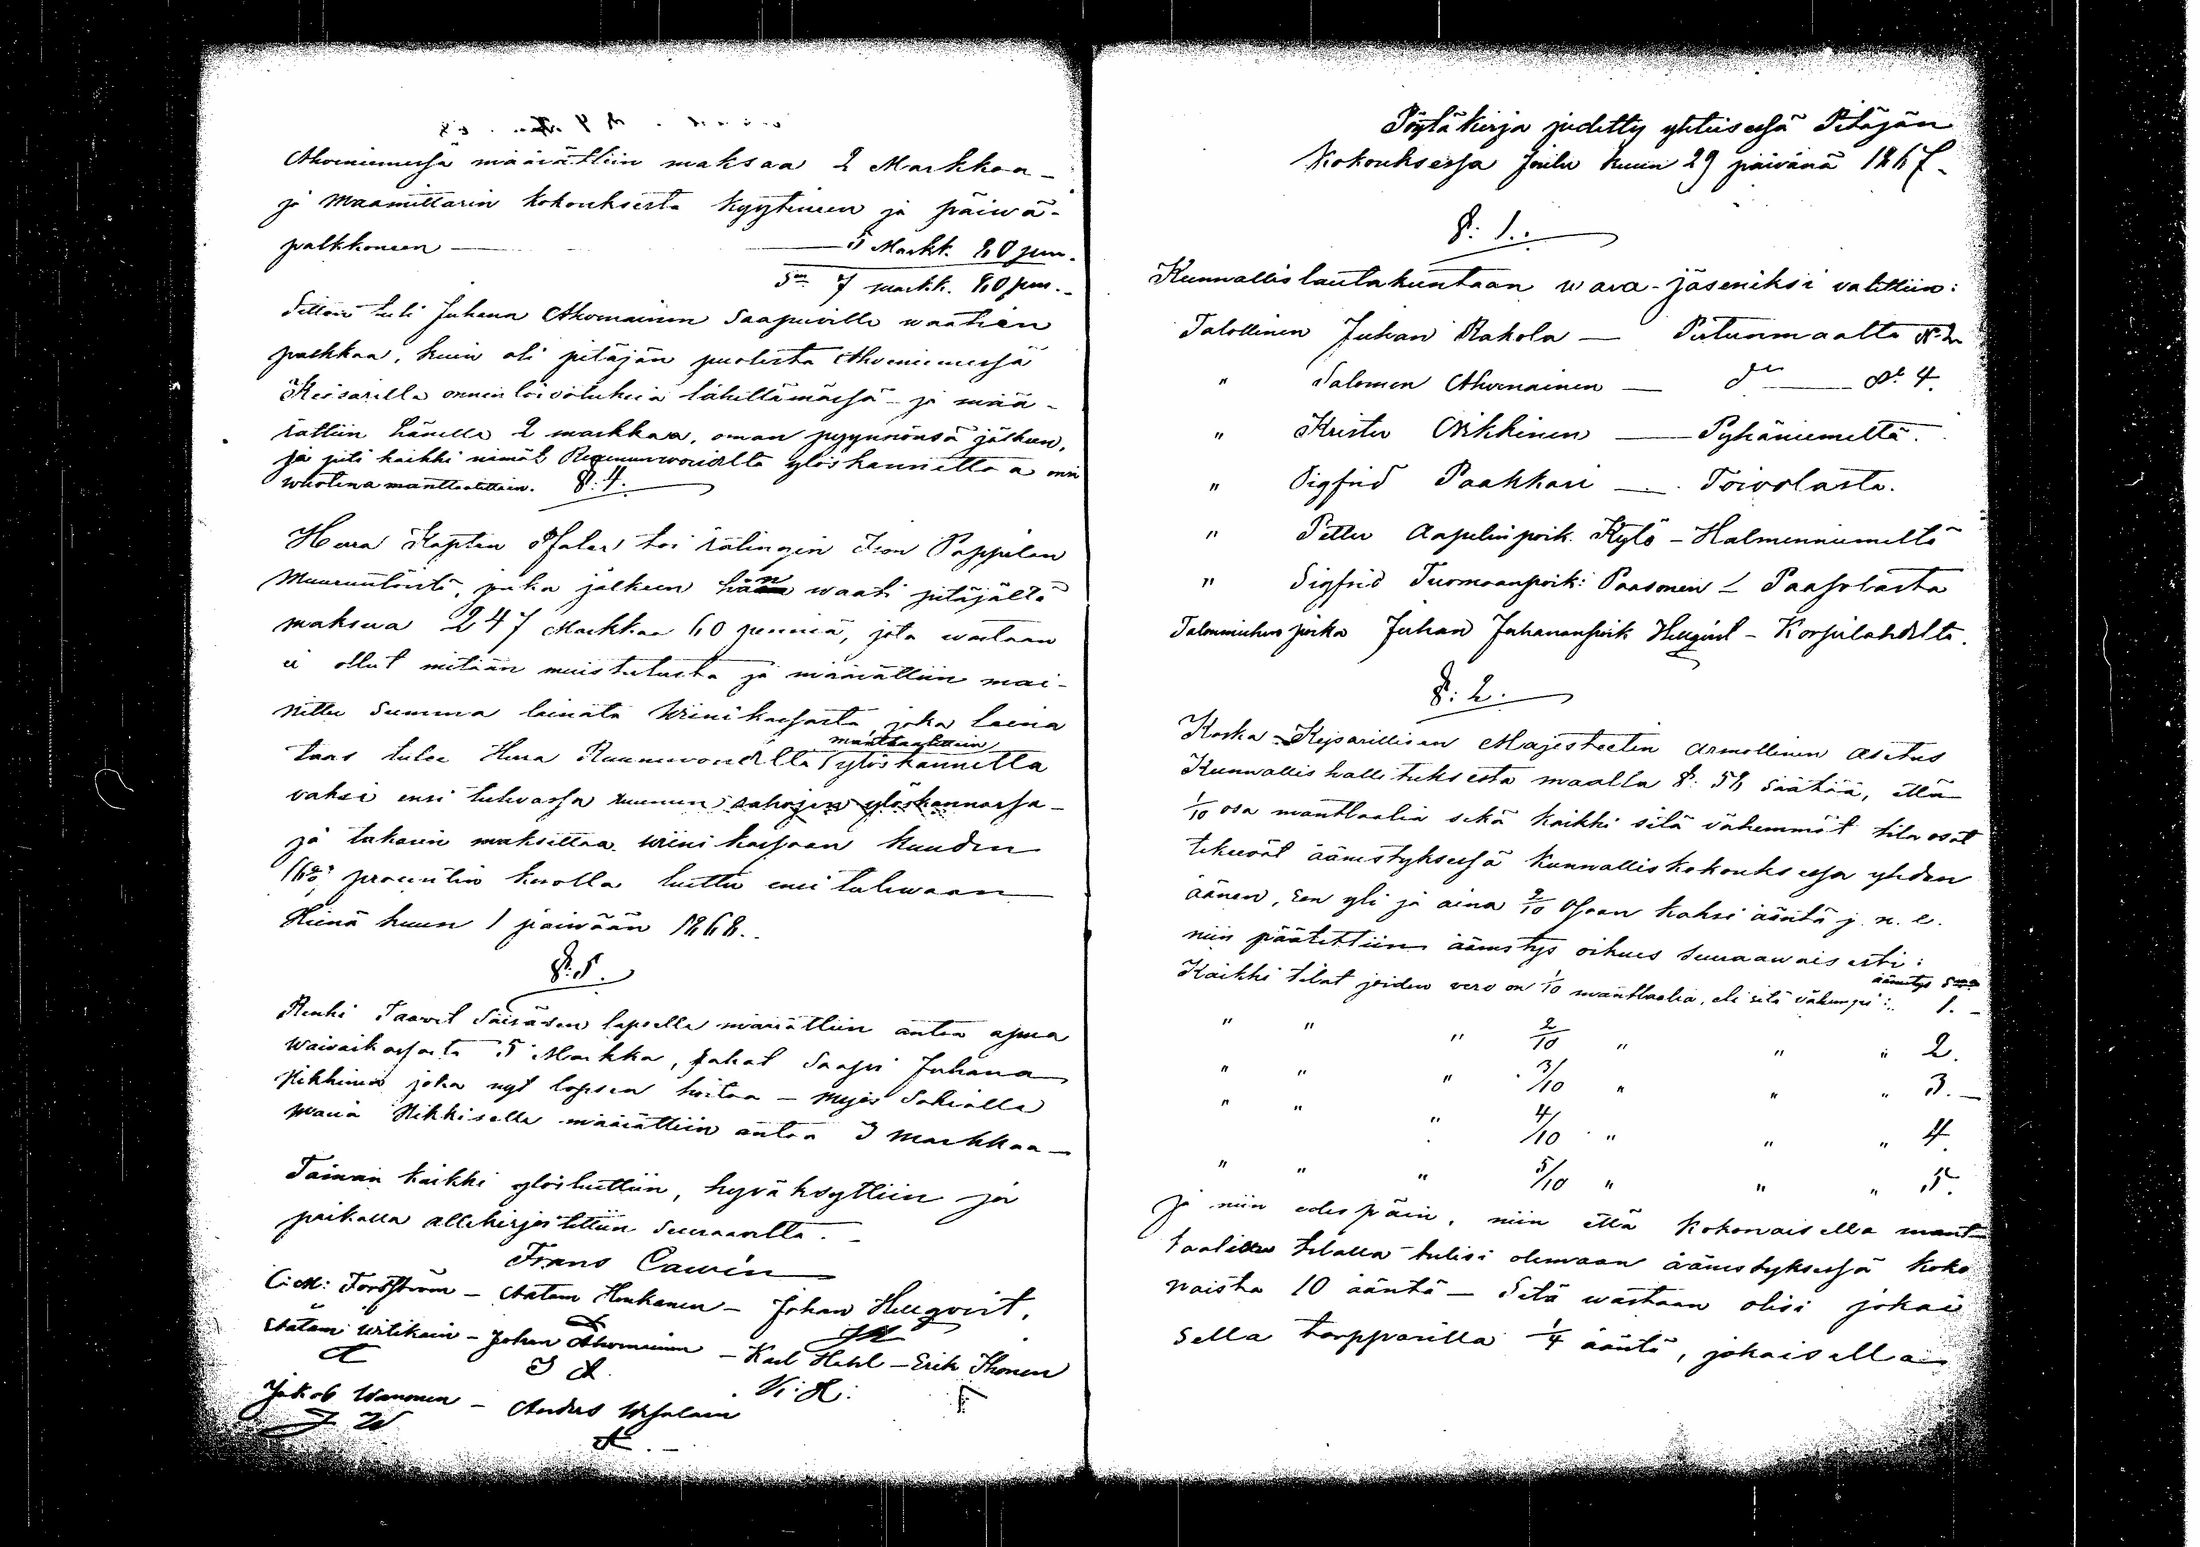 Ahoniemessä määrättiin maksaa 2 Markkaa -
ja Maamittarin kokouksesta kyytineen ja päiwä-
palkkoneen — 5 Markk. 80 pen.
Sa 7 markk. 80 pen.
Silloin tuli Juhana Ahomainen Saapuville waatien
palkkaa, kuin oli pitäjän puolesta Ahoniemessä
Keisarille onnen toivotuksia lähettämässä - ja mää-
rättiin hänelle 2 markkaa, oman pyynnönsä jälkeen,
ja piti kaikki nimät Ruunuwoudilta ylöskannettaa ensi
wuotena manttaalittain. §: 4.
Herra Kapten Afaler toi rätingin Ison Pappilan
Muuruutöistä, jonka jälkeen hän waati pitäjältä
maksua 247 Markkaa 60 penniä, jota wastaan
ei ollut mitään muistutusta ja määrättiin mai-
nittu Summa lainata Wiinikassasta joka laina
taas tulee Herra Ruunuvoudilta manttaalittain ylöskannetta
vaksi ensi tulevassa ruunun rahojen ylöskannossa -
ja takasin maksettaa Wiini kassaan kuuden
(6%) procentin kasvolla luettu ensi tulewaan
Heinä kuun 1 päiwään 1868.
§: 5.
Renki Taavet Säisäsen lapselle määrättiin antaa apua
waivaiskassasta 5 Markka, rahat Saapi Juhana
Nikkinen joka nyt lapsen hoitaa - myös Sokialle
Maria Nikkiselle määrättiin antaa 3 markkaa -
Tämän kaikki ylösluettiin, hyväksyttiin ja
paikalla allekirjoitettiin Seuraavilta. -
Frans Cawén
C: M: Forsström - Aatam Honkanen - Johan Hellqvist.
JH
Aatam Witikain - Johan Ahomainen - Karl Hehl - Erik Ihonen
A J A K: H:
Jakob Wanonen - Anders Wesalain
J W A. -
Pöytäkirja pidetty yhteisessä Pitäjän
Kokouksessa Joulu kuun 29 päivänä 1867 -
§: 1.
Kunnallislautakuntaan wara-jäseniksi valittiin:
Talollinen Juhan Rakola — Putunmaalta No 2
" Salomon Ahonainen — do — No 4.
" Krister Oikkinen — Pyhäniemeltä.
" Sigfrid Paakkari — Toivolasta.
" Petter Aapelinpoik. Kytö - Halmenniemeltä
" Sigfrid Tuomaanpoik: Paasonen - Paasolasta
Talonmiehen poika Juhan Juhananpoik Hellqvist - Korpilahdelta.
§: 2.
Koska Keisarillisen Majesteetin armollinen asetus
Kunnallishallituksesta maalla §: 58 säätää, että
1/10 osa manttaalia sekä kaikki sitä vähemmät tila osat
tekevät äänestyksessä Kunnalliskokouksessa yhden
äänen, sen yli ja aina 2/10 Osaan kaksi ääntä j. n. e.
niin päätettiin äänestys oikeus Seuraavaisesti:
äänestys Summa
Kaikki tilat joiden vero on 1/10 manttaalia, eli sitä vähempi: 1. -
" " " 2/10 " " " 2.
" " " 3/10 " " " 3. -
" " " 4/10 " " " 4
" " " 5/10 " " " 5.
Ja niin edespäin, niin että kokonaisella mant-
taalin tilalla tulisi olemaan äänestyksessä koko
naista 10 ääntä - Sitä wastaan olisi jokai
sella torpparilla 1/4 ääntä, jokaisella